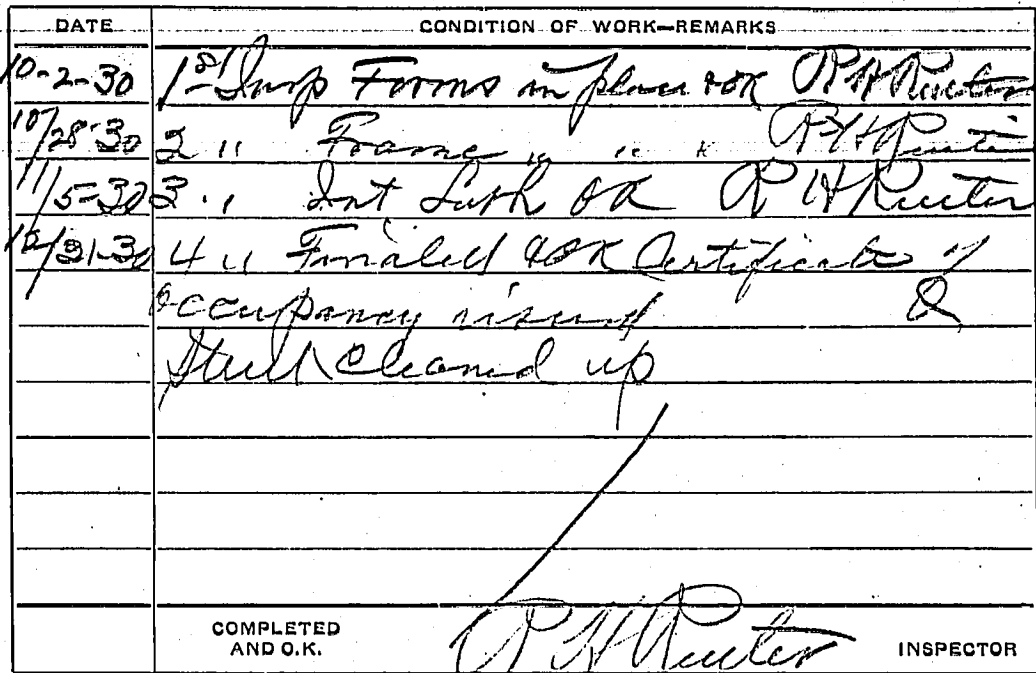 DATE CONDITION OF WORK—REMARKS
10-2-30 1st Insp Forms in place & OK R H Reuter
10/28-30 2 " Frame " " " R H Reuter
11/5-30 3 " Int Lath OK R H Reuter
12/31-30 4 " Finaled & OK Certificate of
Occupancy issued &
Street Cleaned up
COMPLETED
AND O.K. R H Reuter INSPECTOR